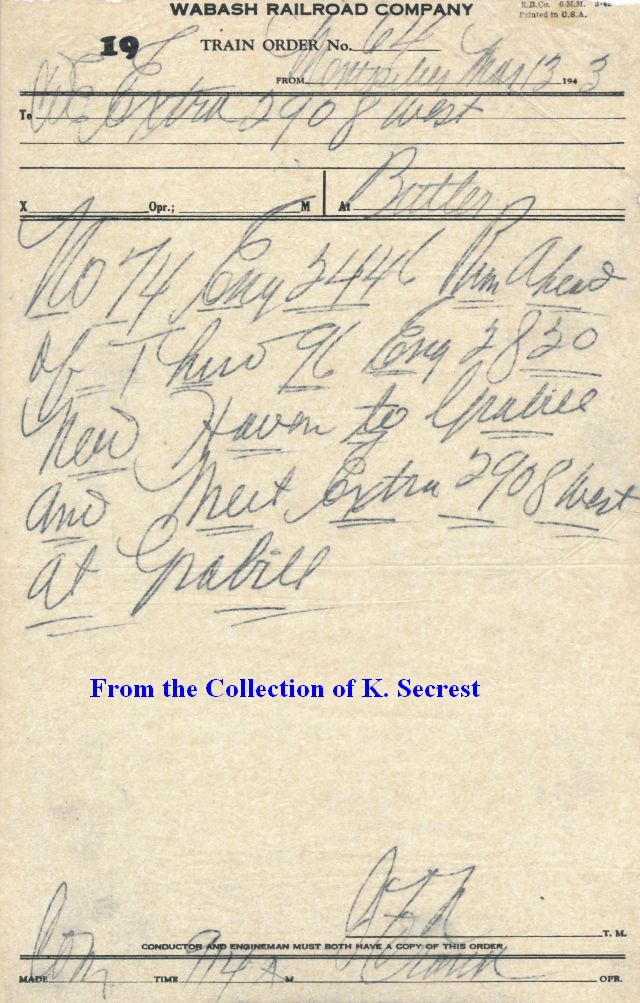 WABASH RAILROAD COMPANY
R.D.Co. 6 M.M. 3-42
Printed in U.S.A.
19 TRAIN ORDER No. 64
FROM Montpelier Mar 13 194 3
To C&E Extra 2908 West
X Opr.; M At Butler
No 74 Eng 2446 Run Ahead
of Third 96 Eng 2820
New Haven to Grabill
and Meet Extra 2908 West
at Grabill
From the Collection of K. Secrest
T. M.
CONDUCTOR AND ENGINEMAN MUST BOTH HAVE A COPY OF THIS ORDER
MADE Com TIME A M OPR.